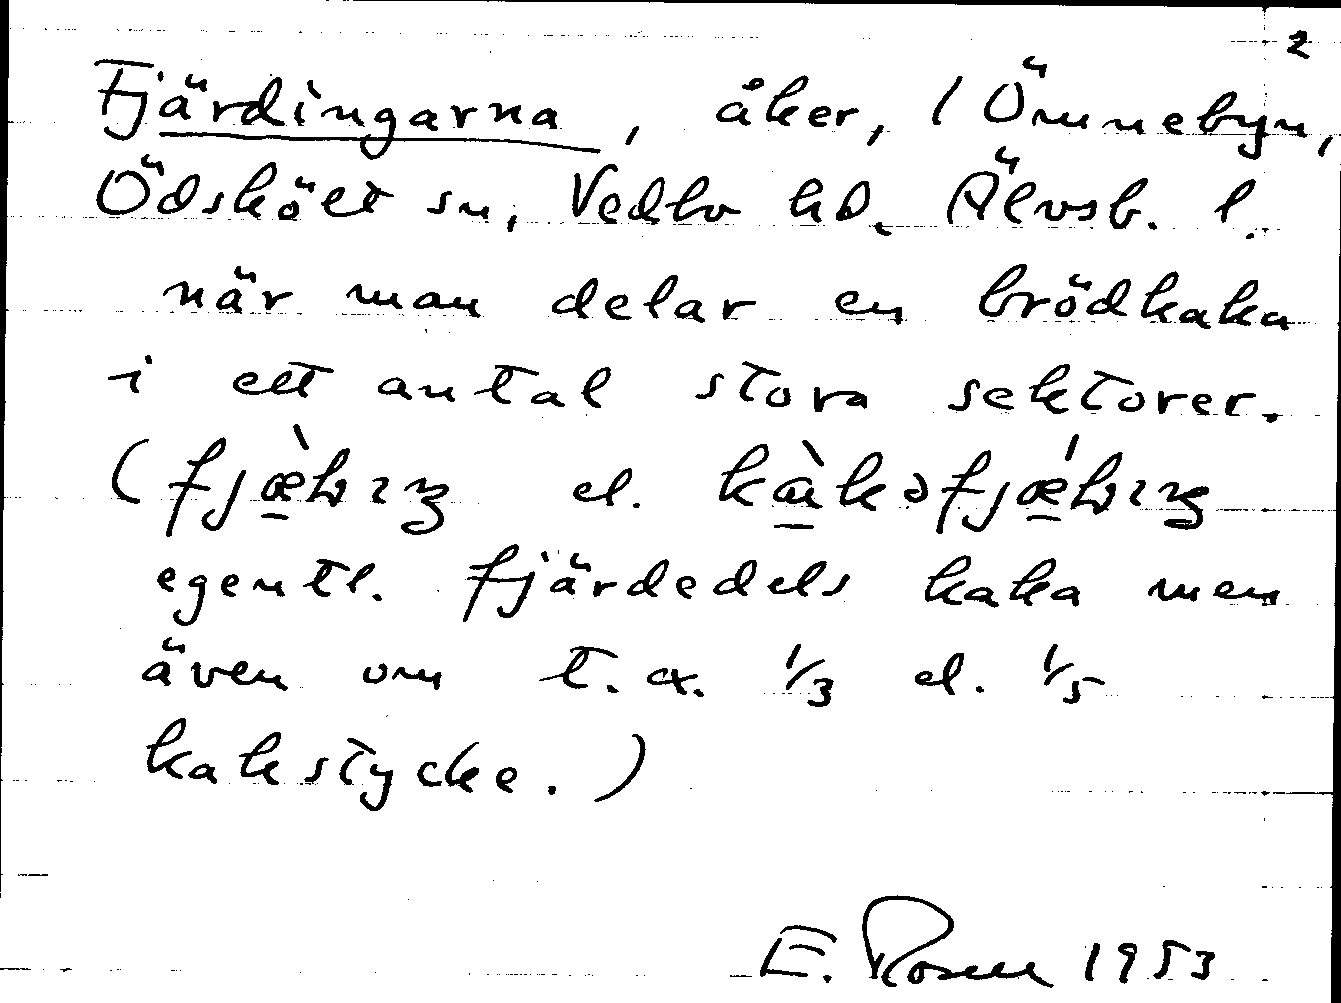 2
Fjärdingarna, åker, 1 Ömmebyn,
Ödsköelt sn, Vedbo hd. Älvsb. l.
när man delar en brödkaka
i ett antal stora sektorer.
( el.
egentl. fjärdedels kaka men
även om t. ex. 1/3 el. 1/5
kakstycke.)
E. Rosen 1953